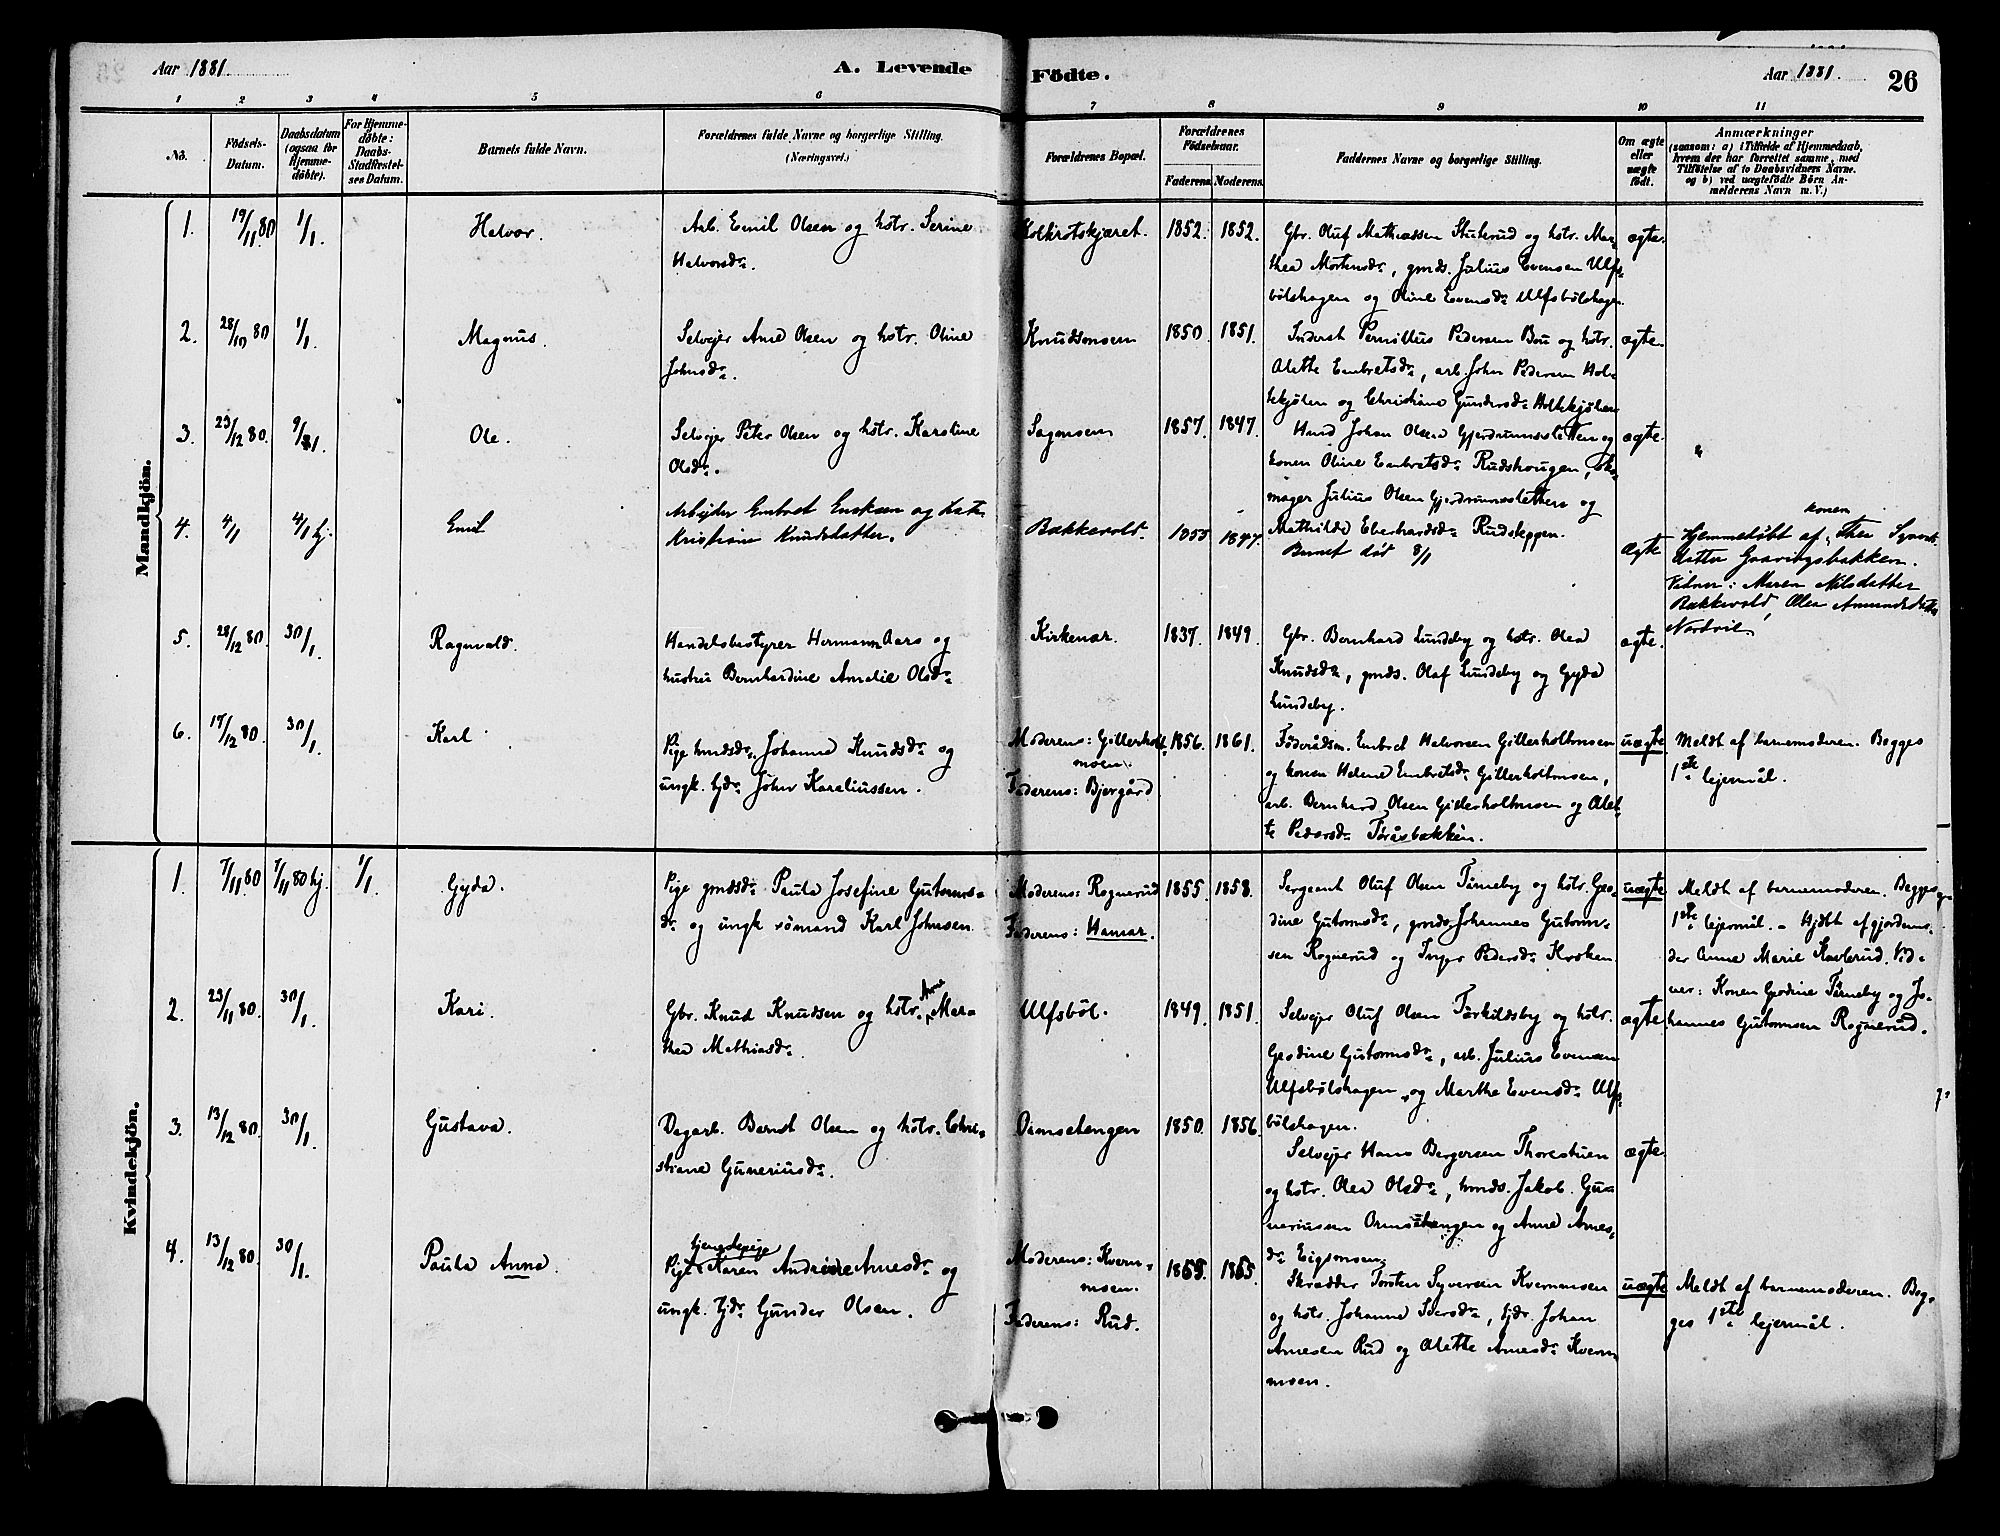 Aar 1881.
A. Levende Födte.
Aar 1881.
26
1 2 3 4 5 6 7 8 9 10 11
No.
Födsels-Datum.
Daabsdatum (ogsaa for Hjemme-döbte).
For Hjemme-döbte: Daabs-Stadfæstel-ses Datum.
Barnets fulde Navn.
Forældrenes fulde Navne og borgerlige Stilling.
(Næringsvei.)
Forældrenes Bopæl.
Forældrenes Födselsaar.
Faderens. Moderens.
Faddernes Navne og borgerlige Stilling.
Om ægte eller uægte födt.
Anmærkninger
(saasom: a) i Tilfælde af Hjemmedaab, hvem der har forrettet samme, med Tilföielse af to Daabsvidners Navne. og b) ved uægtefödte Börn An-melderens Navn m. V.)
Mandkjön.
1. 19/11 80 1/1. Halvor.
Arb. Emil Olsen og hstr. Serine
Halvorsdr.
Kolkrotskjæret. 1852. 1852.
Gbr. Oluf Mathiassen Stuterud og hstr. Mar-
thea Mortensdr, gmds. Julius Evensen Ulfs-
bølshagen og Oline Evensdr Ulfsbølshagen.
ægte.
2. 28/10 80 1/1. Magnus.
Selvejer Arne Olsen og hstr. Oline
Johnsdr.
Knudsmoen 1850. 1851.
Inderst Pernillus Pedersen Bou og hstr.
Alette Embretsdr, arb. John Pedersen Hol-
tekjølen og Christiane Gundersdr Holtekjølen
ægte.
3. 23/12 80. 9/1 81. Ole.
Selvejer Peter Olsen og hstr. Karoline
Olsdr.
Sagmoen 1857. 1847.
Johan Olsen Gjerdrumssletten og
konen Oline Embretsdr Rudshaugen, sko-
mager Julius Olsen Gjerdrumssletten og
Mathilde Eberhardsdr Rudsleggen.
ægte.
"
4. 4/1 4/1 hj. Emil
Arbejder Embret Eriksen og
Kristiane Knudsdatter.
Bakkevold. 1855 1847.
Barnet død 8/1
Ægte
Hjemmedøbt af konen Thea
datter Gaarvigsbakken.
Vidner: Maren Nilsdatter
Bakkevold, Olea Amundsdatter
Nordvik
5. 28/12 80. 30/1. Ragnvald.
Handelsbestyrer Hermann Aars og
hustru Bernhardine Amalie Olsdr
Kirkenær. 1837. 1849.
Gbr. Bernhard Lundeby og hstr. Olea
Knudsdr, gmds. Olaf Lundeby og Gyda
Lundeby.
ægte.
6. 17/12 80. 30/1. Karl
Pige hmdsdr. Johanne Knudsdr og
ungk. tjdr. John Kareliussen.
Moderens: Gillerholt-
moen.
Faderens: Bjergård
1856. 1861.
Føderådsm. Embret Halvorsen Gillerholtmoen
og konen Helene Embretsdr Gillerholtmoen,
arb. Bernhard Olsen Gillerholtmoen og Alet-
te Pedersdr Toråsbakken.
uægte
Meldt af barnemoderen. Begges
1ste lejermål.
Kvindekjön.
1. 7/11 80 7/11 80 hj. 1/1. Gyda.
Pige gmdsdr. Paula Josefine Gutorms-
dr og ungk sømand Karl Johnsen.
Moderens: Rognerud
Faderens: Hamar.
1855. 1858.
Sergeant Oluf Olsen Tørneby og hstr. Geo-
dine Gutormsdr, gmds. Johannes Gutorm-
sen Rognerud og Inger Pedersdr Kroken
uægte
Meldt af barnemoderen. Begges
1ste lejermål. - Hjdbt af gjordemo-
der Anne Marie Kavlerud. Vid-
ner: Konen Geodine Tørneby og Jo-
hannes Gutormsen Rognerud.
2. 23/11 80. 30/1. Kari.
Gbr. Knud Knudsen og hstr. Anne Mar-
thea Mathiasdr.
Ulfsbøl. 1849. 1851.
Selvejer Oluf Olsen Torkildsby og hstr.
Geodine Gutormsdr, arb. Julius Evensen
Ulfsbølshagen og Marthe Evensdr Ulfs-
bølshagen.
ægte
3. 13/12 80. 30/1. Gustava.
Dagarb. Bernt Olsen og hstr. Chri-
stiane Guneriusdr.
Ormsetengen 1850. 1856.
Selvejer Hans Bergersen Thorestuen
og hstr. Olea Olsdr, hmds. Jakob Gu-
neriussen Ormsetengen og Anne Arnes-
dr Eigsmoen.
ægte.
4. 13/12 80. 30/1. Paula Anna.
Pige tjenestepige Karen Andrine Arnesdr og
ungk. tjdr Gunder Olsen.
Moderens: Kvern-
moen.
Faderens: Rud.
1855.
Skrædder Torsten Syversen Kvernmoen
og hstr. Johanne Iversdr, tjdr. Johan
Arnesen Rud og Alette Arnesdr Kvern-
moen.
uægte
Meldt af barnemoderen. Beg-
ges 1ste lejermål.